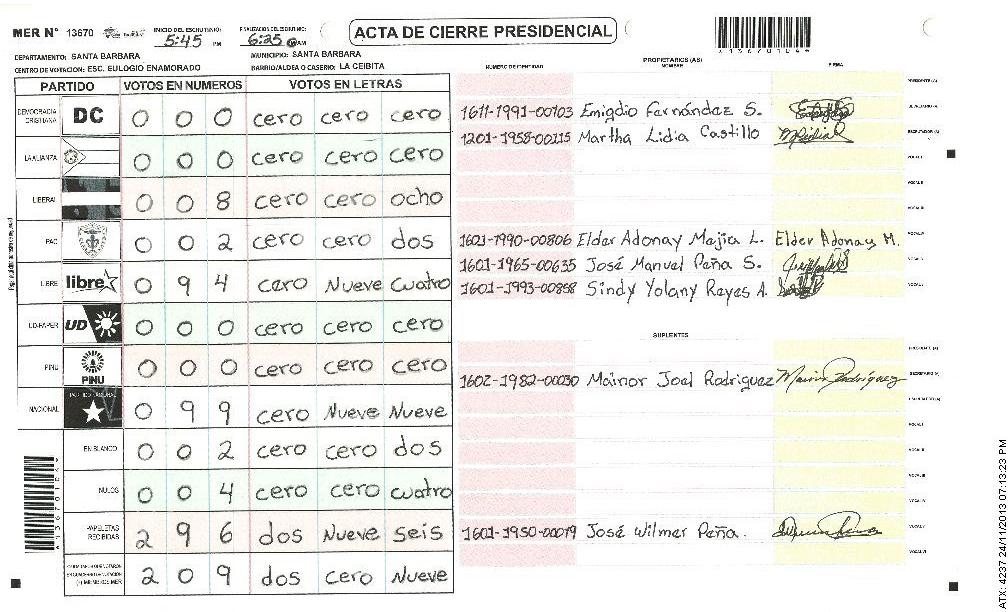 MER N° 13670 INICIO DEL ESCRUTINIO: 5:45 PM FINALIZACION DEL ESCRUTINIO: 6:25 PM
ACTA DE CIERRE PRESIDENCIAL
DEPARTAMENTO: SANTA BARBARA MUNICIPIO: SANTA BARBARA
CENTRO DE VOTACION: ESC. EULOGIO ENAMORADO BARRIO/ALDEA O CASERIO: LA CEIBITA
PARTIDO VOTOS EN NUMEROS VOTOS EN LETRAS
DEMOCRACIA CRISTIANA DC 0 0 0 cero cero cero
LA ALIANZA 0 0 0 cero cero cero
LIBERAL 0 0 8 cero cero ocho
PAC 0 0 2 cero cero dos
LIBRE libre 0 9 4 cero Nueve cuatro
UD-FAPER UD 0 0 0 cero cero cero
PINU PINU 0 0 0 cero cero cero
NACIONAL 0 9 9 cero Nueve Nueve
EN BLANCO 0 0 2 cero cero dos
NULOS 0 0 4 cero cero cuatro
PAPELETAS RECIBIDAS 2 9 6 dos Nueve seis
2 0 9 dos cero Nueve
PROPIETARIOS (AS)
NUMERO DE IDENTIDAD NOMBRE FIRMA
PRESIDENTE (A)
1611-1991-00103 Emigdio Fernández S. SECRETARIO (A)
1201-1958-00115 Martha Lidia Castillo ESCRUTADOR (A)
VOCAL I
VOCAL II
VOCAL III
1601-1990-00806 Elder Adonay Mejia L. Elder Adonay M. VOCAL IV
1601-1965-00635 José Manuel Peña S. VOCAL V
1601-1993-00858 Sindy Yolany Reyes A.
SUPLENTES
PRESIDENTE (A)
1602-1982-00030 Mainor Joel Rodriguez SECRETARIO (A)
ESCRUTADOR (A)
VOCAL I
VOCAL II
VOCAL III
VOCAL IV
1601-1950-00079 José Wilmer Peña. VOCAL V
VOCAL VI
ATX: 4237 24/11/2013 07:13:23 PM